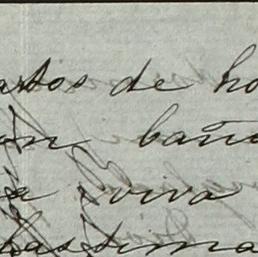 artos de ho
on baña
a viva
lastima